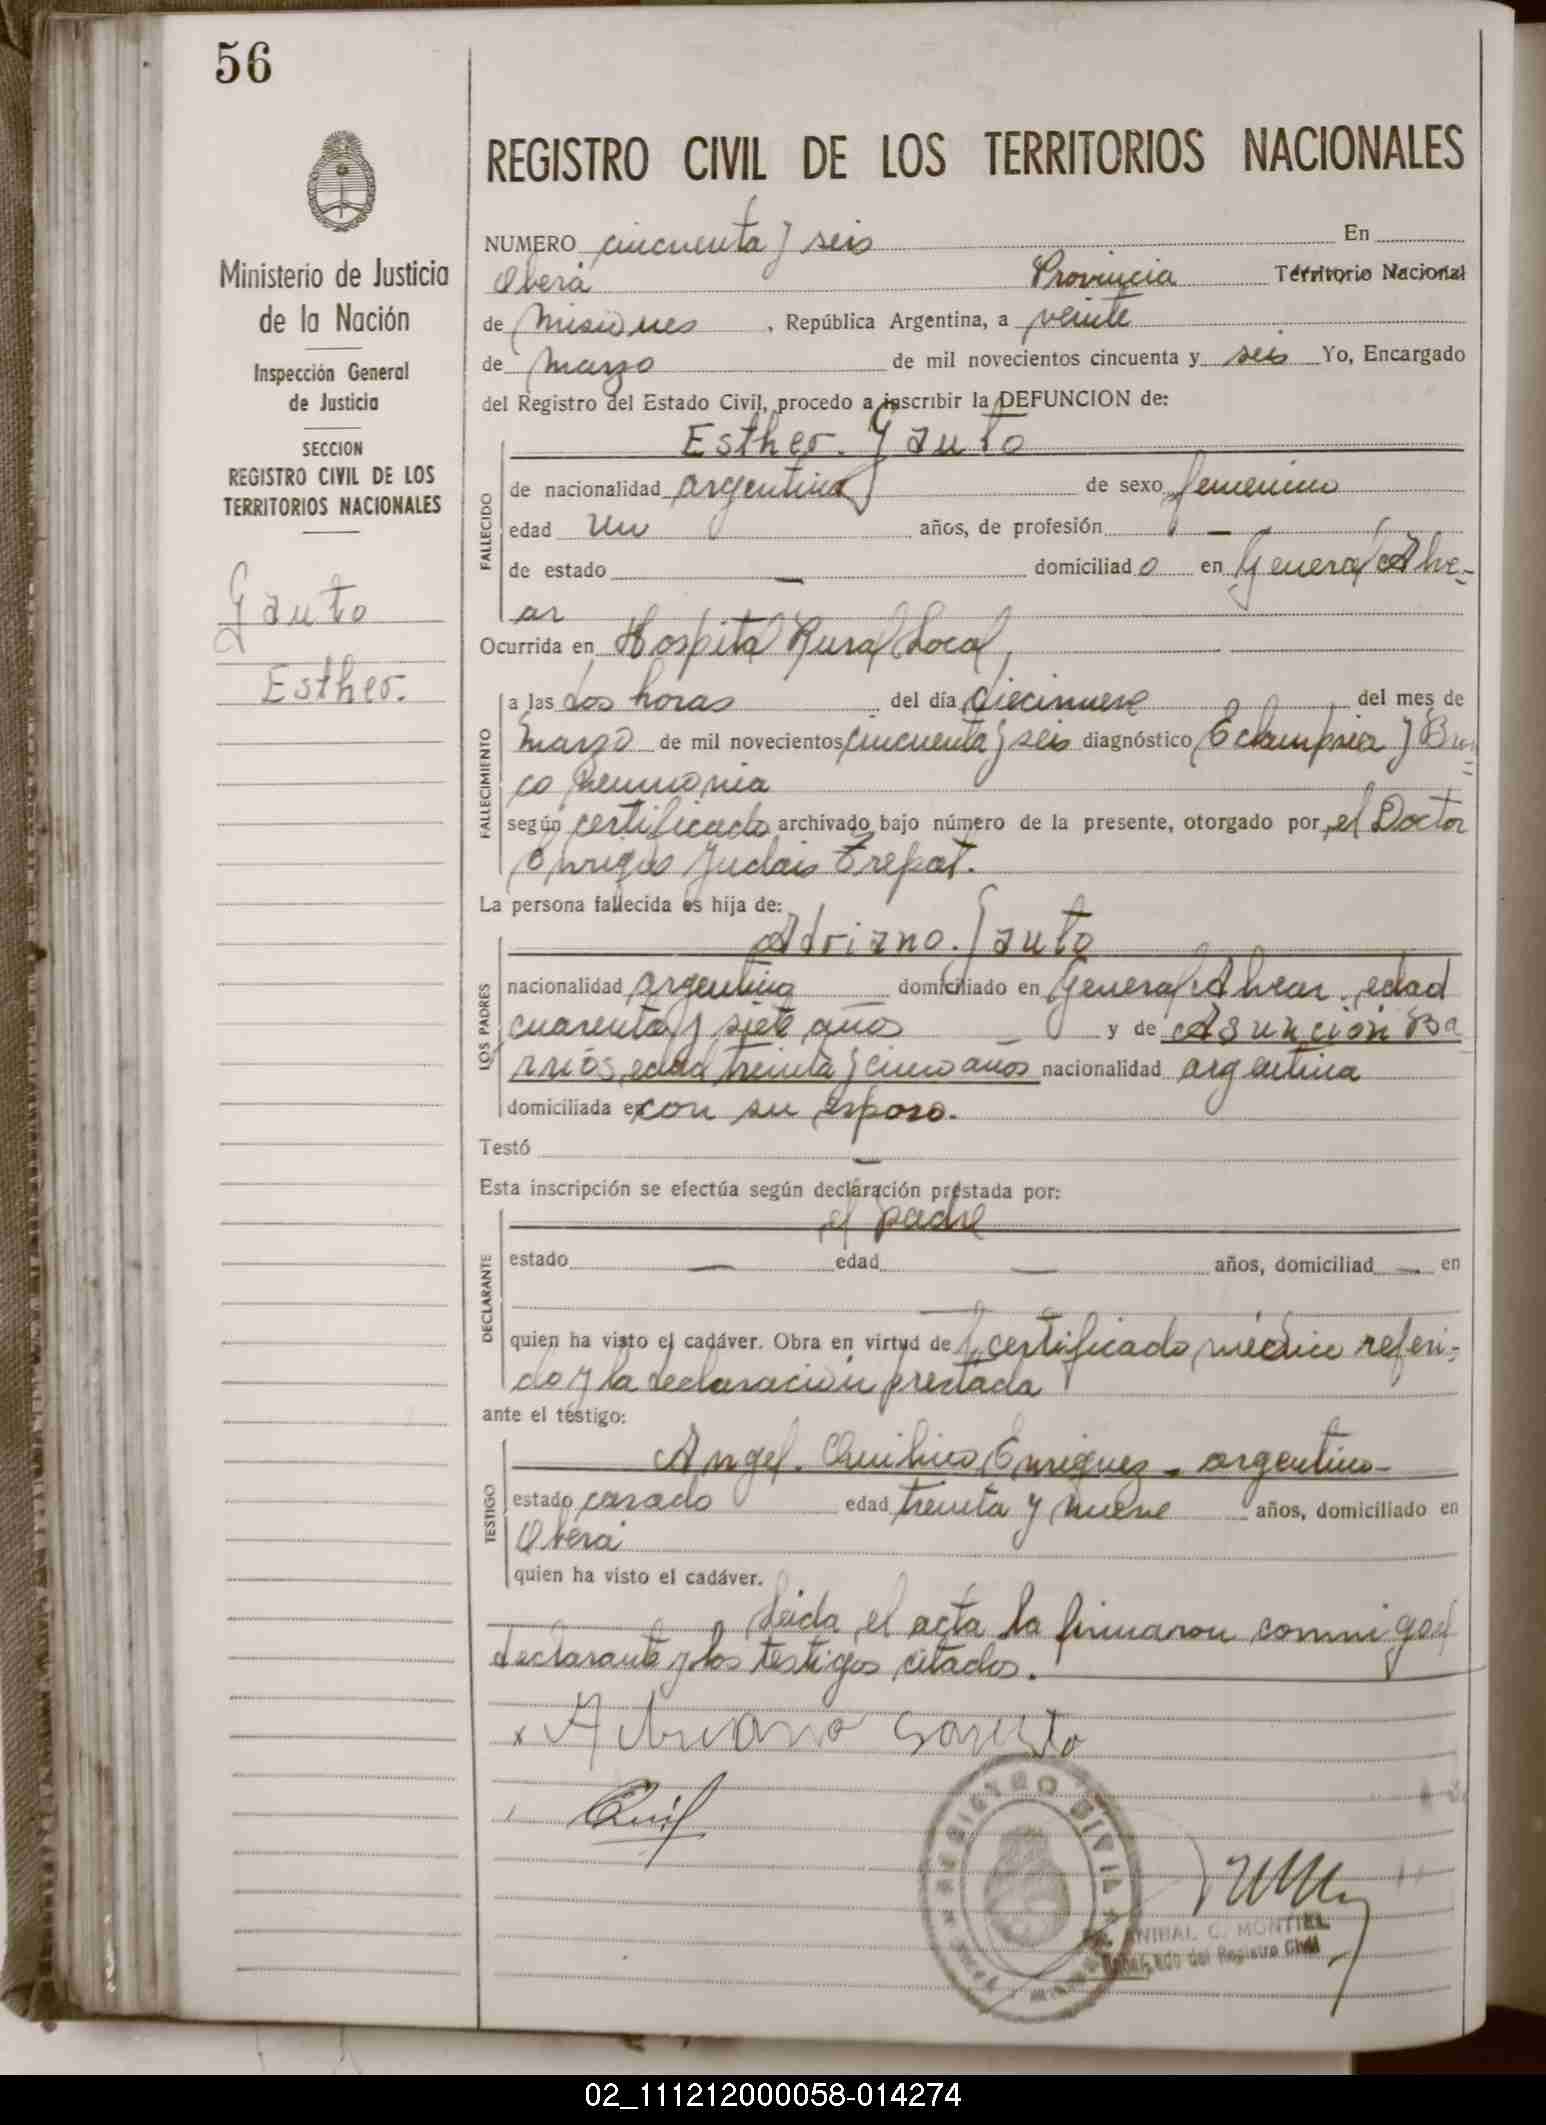 56
REGISTRO CIVIL DE LOS TERRITORIOS NACIONALES
Ministerio de Justicia
de la Nación
Inspección General
de Justicia
SECCION
REGISTRO CIVIL DE LOS
TERRITORIOS NACIONALES
Gauto
Esther.
NUMERO cincuenta y seis En
Oberá Provincia Territorio Nacional
de Misiones, República Argentina, a veinte
de Marzo de mil novecientos cincuenta y seis Yo, Encargado
del Registro del Estado Civil, procedo a inscribir la DEFUNCION de:
Esther. Gauto
FALLECIDO
de nacionalidad argentina de sexo femenino
edad un años, de profesión —
de estado — domiciliado en General Alve-
ar
Ocurrida en Hospital Rural Local,
FALLECIMIENTO
a las dos horas del día diecinueve del mes de
Marzo de mil novecientos cincuenta y seis diagnóstico Eclampsia y Bron
co neumonia
según certificado archivado bajo número de la presente, otorgado por el Doctor
Trepat.
La persona fallecida es hija de:
LOS PADRES
Adriano. Gauto
nacionalidad argentina domiciliado en General Alvear. edad
cuarenta y siete años y de Asunción Ba
rrios, edad treinta y cinco años nacionalidad argentina
domiciliada en con su esposo.
Testó —
Esta inscripción se efectúa según declaración prestada por:
DECLARANTE
el padre
estado — edad — años, domiciliad — en
quien ha visto el cadáver. Obra en virtud de certificado médico referi-
do y la declaración prestada
ante el testigo:
TESTIGO
Angel. Enriquez - argentino-
estado casado edad treinta y nueve años, domiciliado en
Oberá
quien ha visto el cadáver.
Leida el acta la firmaron conmigo el
declarante y los testigos citados.
x Adriano Gauto
REGISTRO CIVIL
ANIBAL C. MONTIEL
Encargado del Registro Civil
02_111212000058-014274